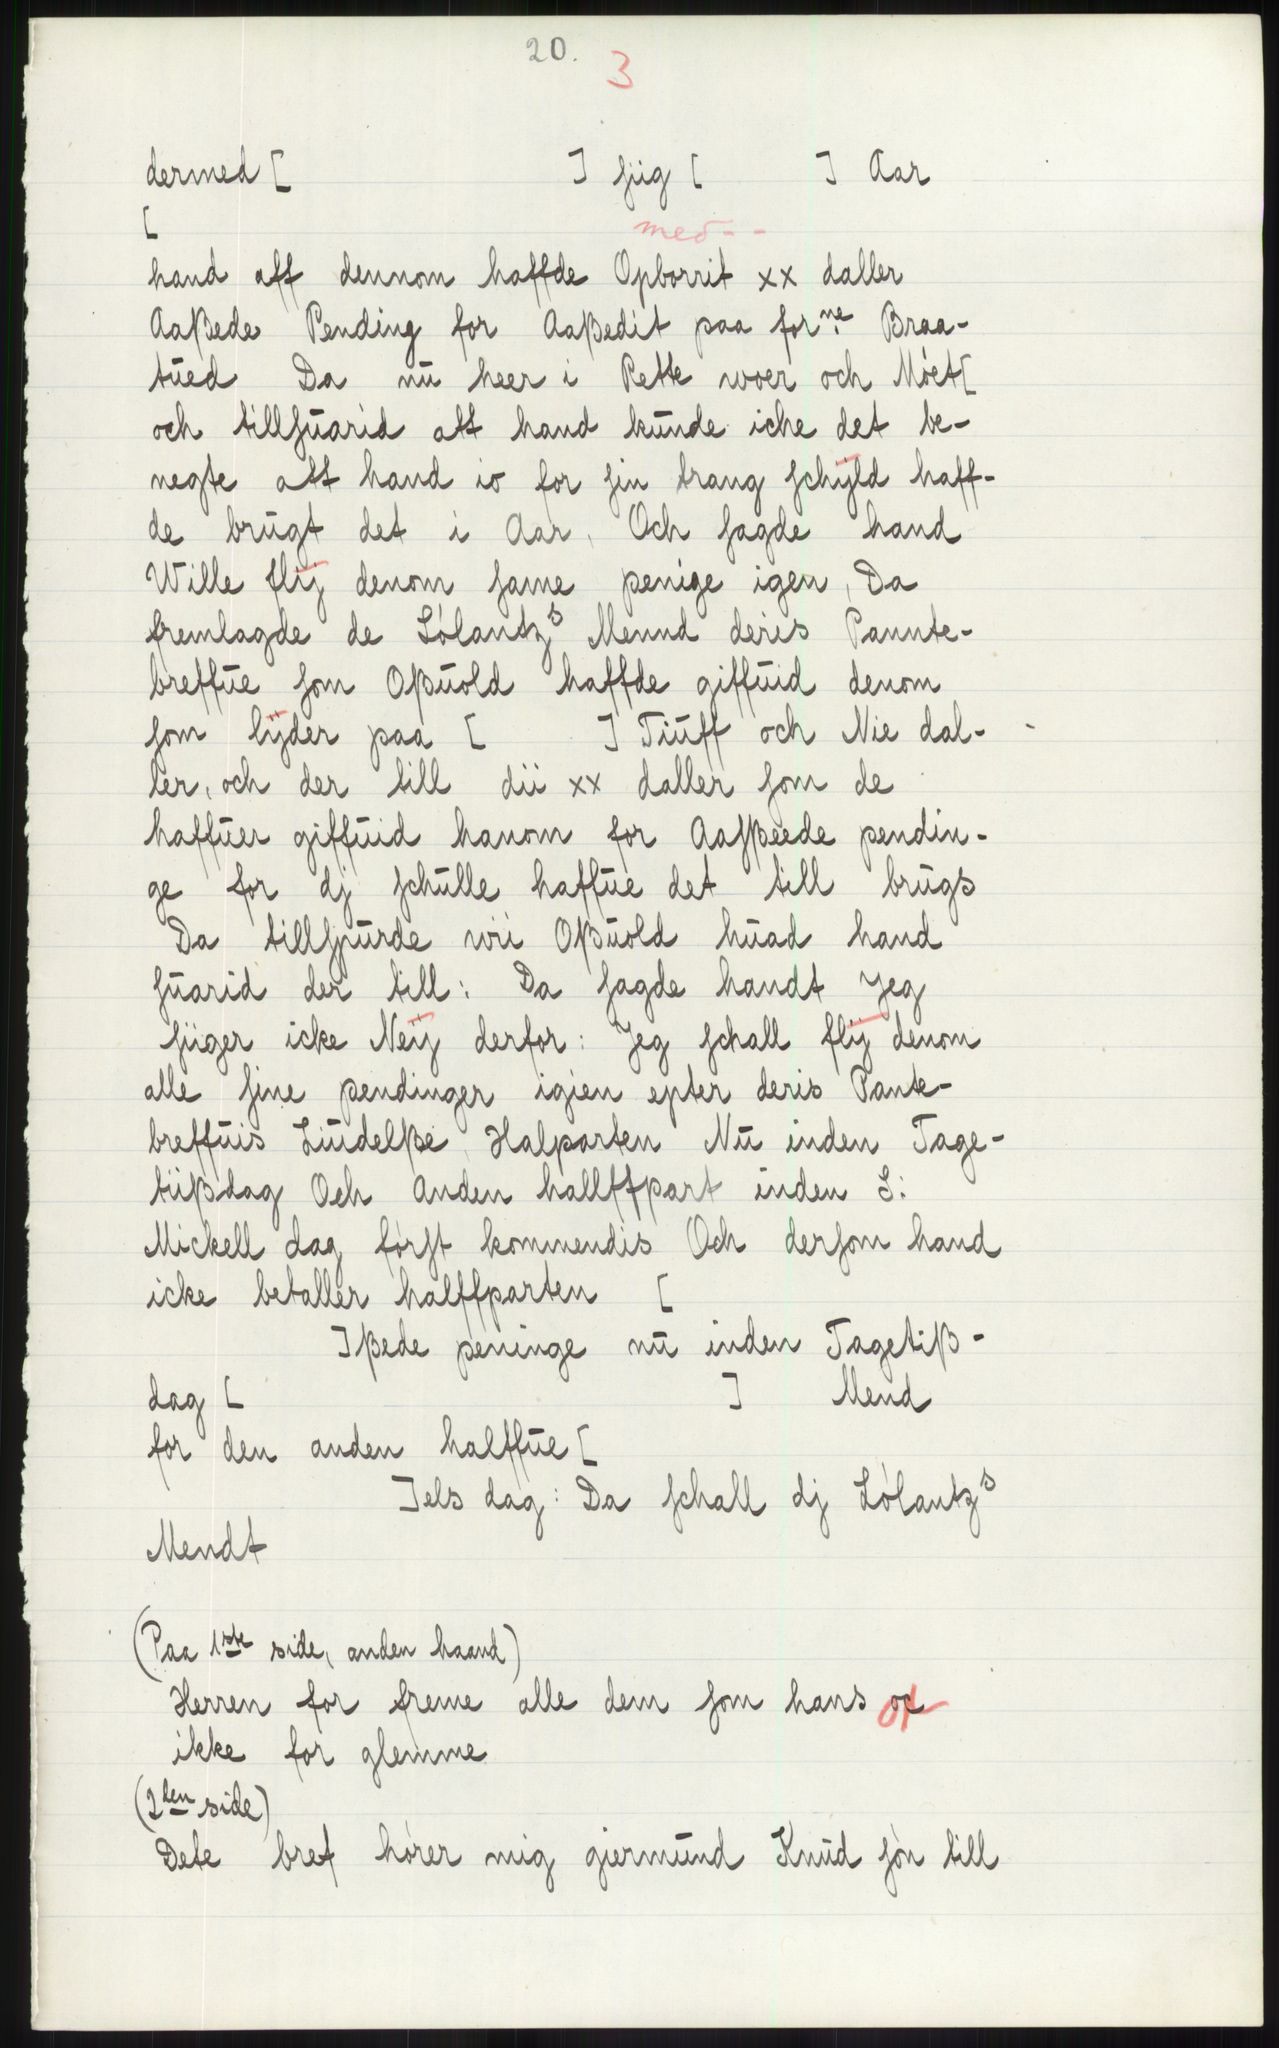 20.
3
dermed [ ] siig [ ] Aar
[
med - -
hand aff dennom haffde Opborrit xx daller
Aaßede Pending for Aaßedit paa forne. Braa-
tued Da nu heer i Rette woer och Móet[
och tillsuarid att hand kunde icke det be-
negte att hand io for sin trang schÿld haff-
de brugt det i Aar, Och sagde hand
Wille flÿ denom same penige igen, Da
fremlagde de Lólantzs Mennd deris Pannte-
breffue som Oßuold haffde giffuid denom
som lÿder paa [ ] Tiuff och Nie dal-
ler, och der till dii xx daller som de
haffuer giffuid hanom for Aasßeede pendin-
ge for dj schulle haffue det till brugs
Da tillspurde wii Oßuold huad hand
suarid der till: Da sagde handt Jeg
siiger icke Neÿ derfor: Jeg schall flÿ denom
alle sine pendinger igien epter deris Pante-
breffuis Liudelße, Halparten Nu inden Tage-
tiißdag Och Anden hallffpart inden S:
Mickell dag fórst kommendis Och dersom hand
icke betaller halffparten [
]ßede peninge nu inden Tagetiß-
dag [ ] Mend
for den anden halffue [
]els dag: Da schall dj Lólantzs
Mendt
(Paa 1ste side, anden haand)
Herren for freme alle dem som hans or
ikke for glemme
(2den side)
Dete bref hórer mig giermund Knud són till